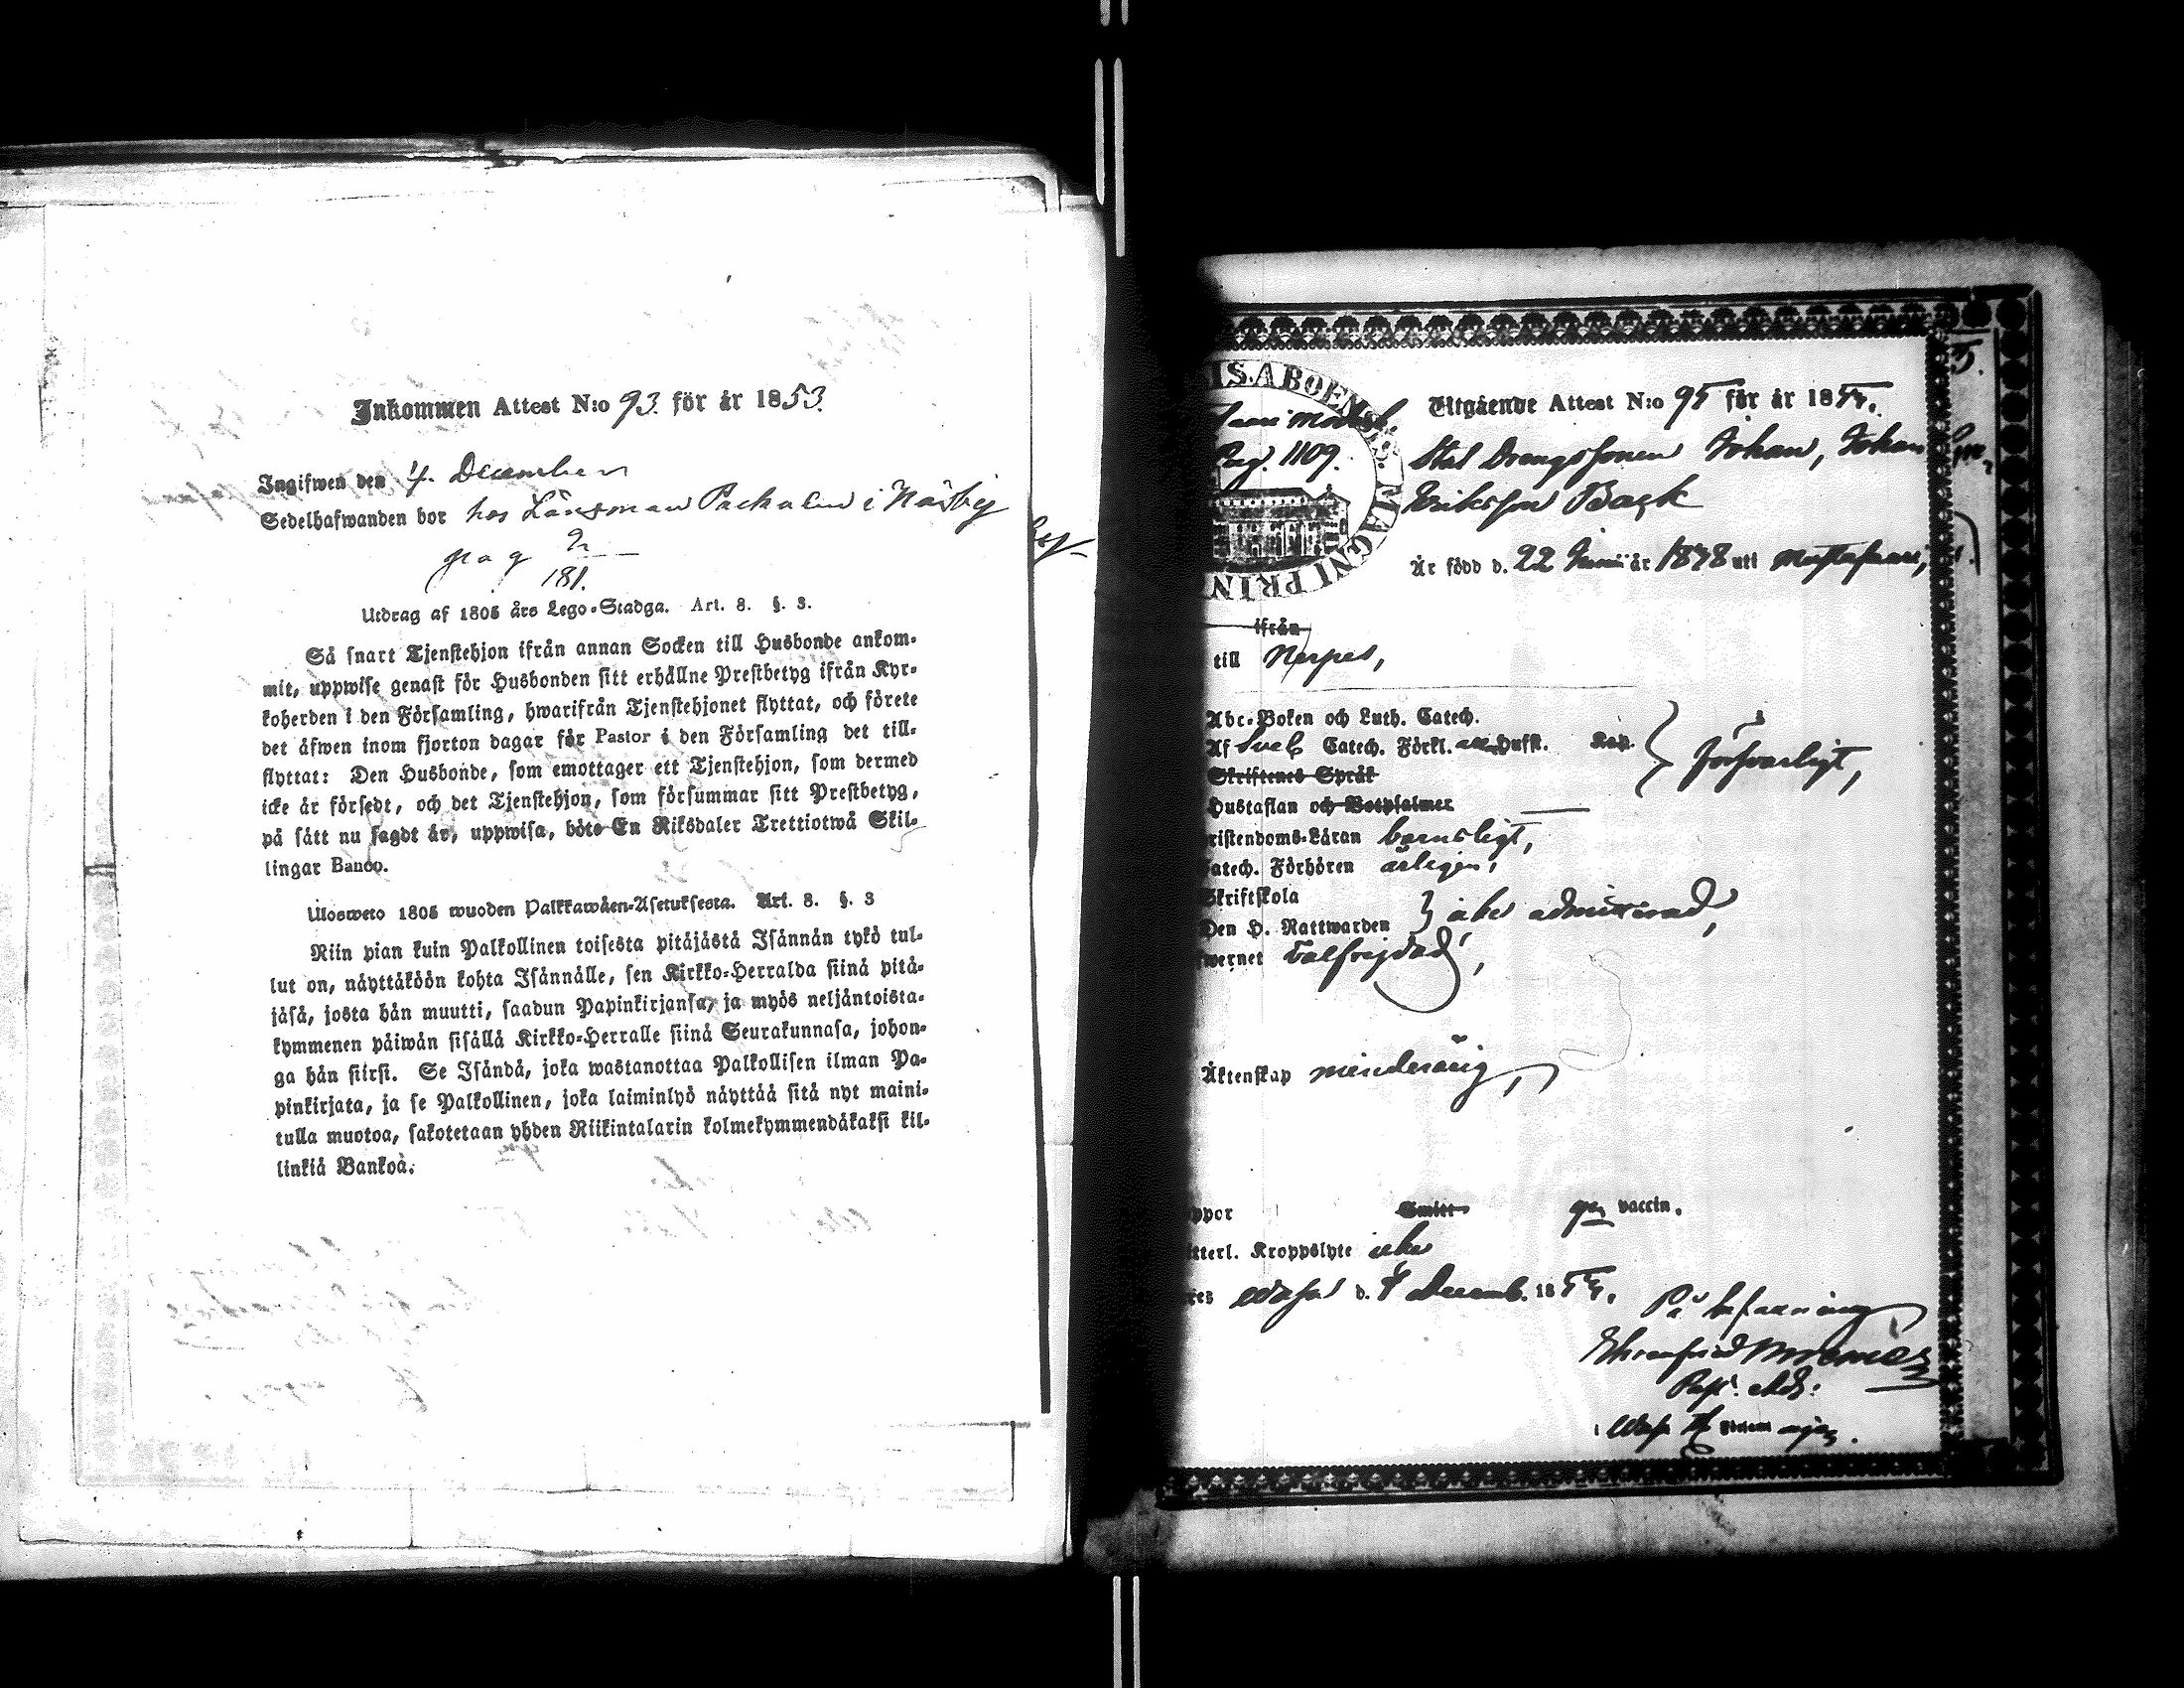 Inkommen Attest N:o 93. för år 1853.
Ingifwen den 4. December
Sedelhafwanden bor hos Länsman Packalen i Näsby
pag 2
181.
Utdrag af 1805 års Lego-Stadga. Art. 8. §. 3.
Så snart Tjenstehjon ifrån annan Socken till Husbonde ankom-
mit, uppwise genast för Husbonden sitt erhållne Prestbetyg ifrån Kyr-
koherden i den Församling, hwarifrån Tjenstehjonet flyttat, och förete
det äfwen inom fjorton dagar för Pastor i den Församling det till-
flyttat: Den Husbonde, som emottager ett Tjenstehjon, som dermed
icke är försedt, och det Tjenstehjon, som försummar sitt Prestbetyg,
på sätt nu sagdt är, uppwisa, böte En Riksdaler Trettiotwå Skil-
lingar Banco.
Ulosweto 1805 wuoden Palkkawäen-Asetuksesta. Art. 8. §. 3
Niin pian kuin Palkollinen toisesta pitäjästä Isännän tykö tul-
lut on, näyttäköön kohta Isännälle, sen Kirkko-Herralda siinä pitä-
jäsä, josta hän muutti, saadun Papinkirjansa, ja myös neljäntoista-
kymmenen päiwän sisällä Kirkko-Herralle siinä Seurakunnasa, johon-
ga hän siirsi. Se Isändä, joka wastanottaa Palkollisen ilman Pa-
pinkirjata, ja se Palkollinen, joka laiminlyö näyttää sitä nyt maini-
tulla muotoa, sakotetaan yhden Riikintalarin kolmekymmendäkaksi kil-
linkiä Bankoa.
IS.ABOENS.MAGNI PRIN
Pag. 1109.
Utgående Attest N:o 95 för år 1855.
Drengssonen Johan, Johan
Eriksson Back
Är född d. 22 Junii år 1848 uti Mustasaari,
ifrån
till Nerpes,
Abc-Boken och Luth. Catech.
Af Sveb. Catech. Förkl. Hufst. Kap. försvarligt,
Skriftenes Språk
Hustaflan och Botpsalmer
ristendoms-Läran barnsligt,
atech. Förhören årligen,
Skriftskola
Den H. Nattwarden icke admitterad,
wernet välfrejdad,
Äktenskap minderårig,
ppor Smitt gen vaccin.
tterl. Kroppslyte icke
res Wasa d. 4 Decemb. 1855.
På befallning
Ehrenfried
Past. Adj:
i Wasa